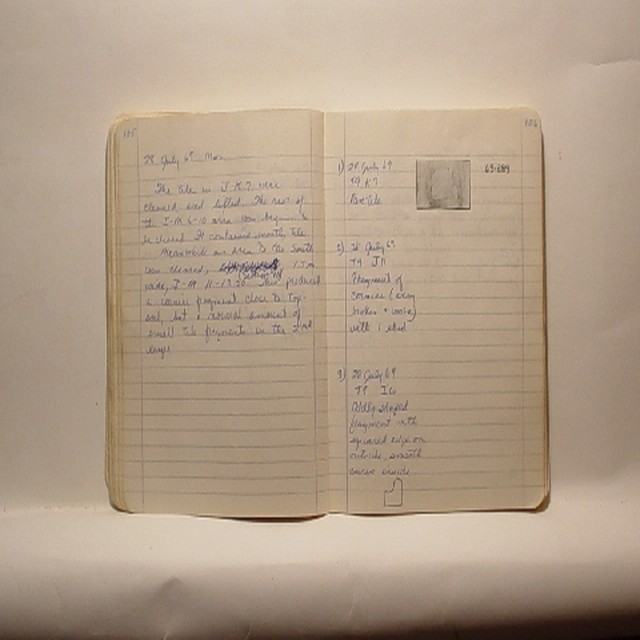 105
28 July 69 Mon
The tile in J-K 7 were
cleaned and lifted. The rest of
the I-M 6-10 area was begun to
be cleaned. It contained mostly tile
Meanwhile an area to the South
was cleaned, 1.5 m
wide, I-M 11-13.20. This produced
a cornice fragment close to top-
soil, but a normal amount of
small tile fragments in the 2nd
layer
106
1) 28 July 69
T9 K7
Pan tile
69-289
2) 28 July 69
T9 J11
Fragment of
cornice (very
broken + worn)
with 1 stud
3) 28 July 69
T9 I6
Oddly shaped
fragment with
squared edge on
outside, smooth
curve inside